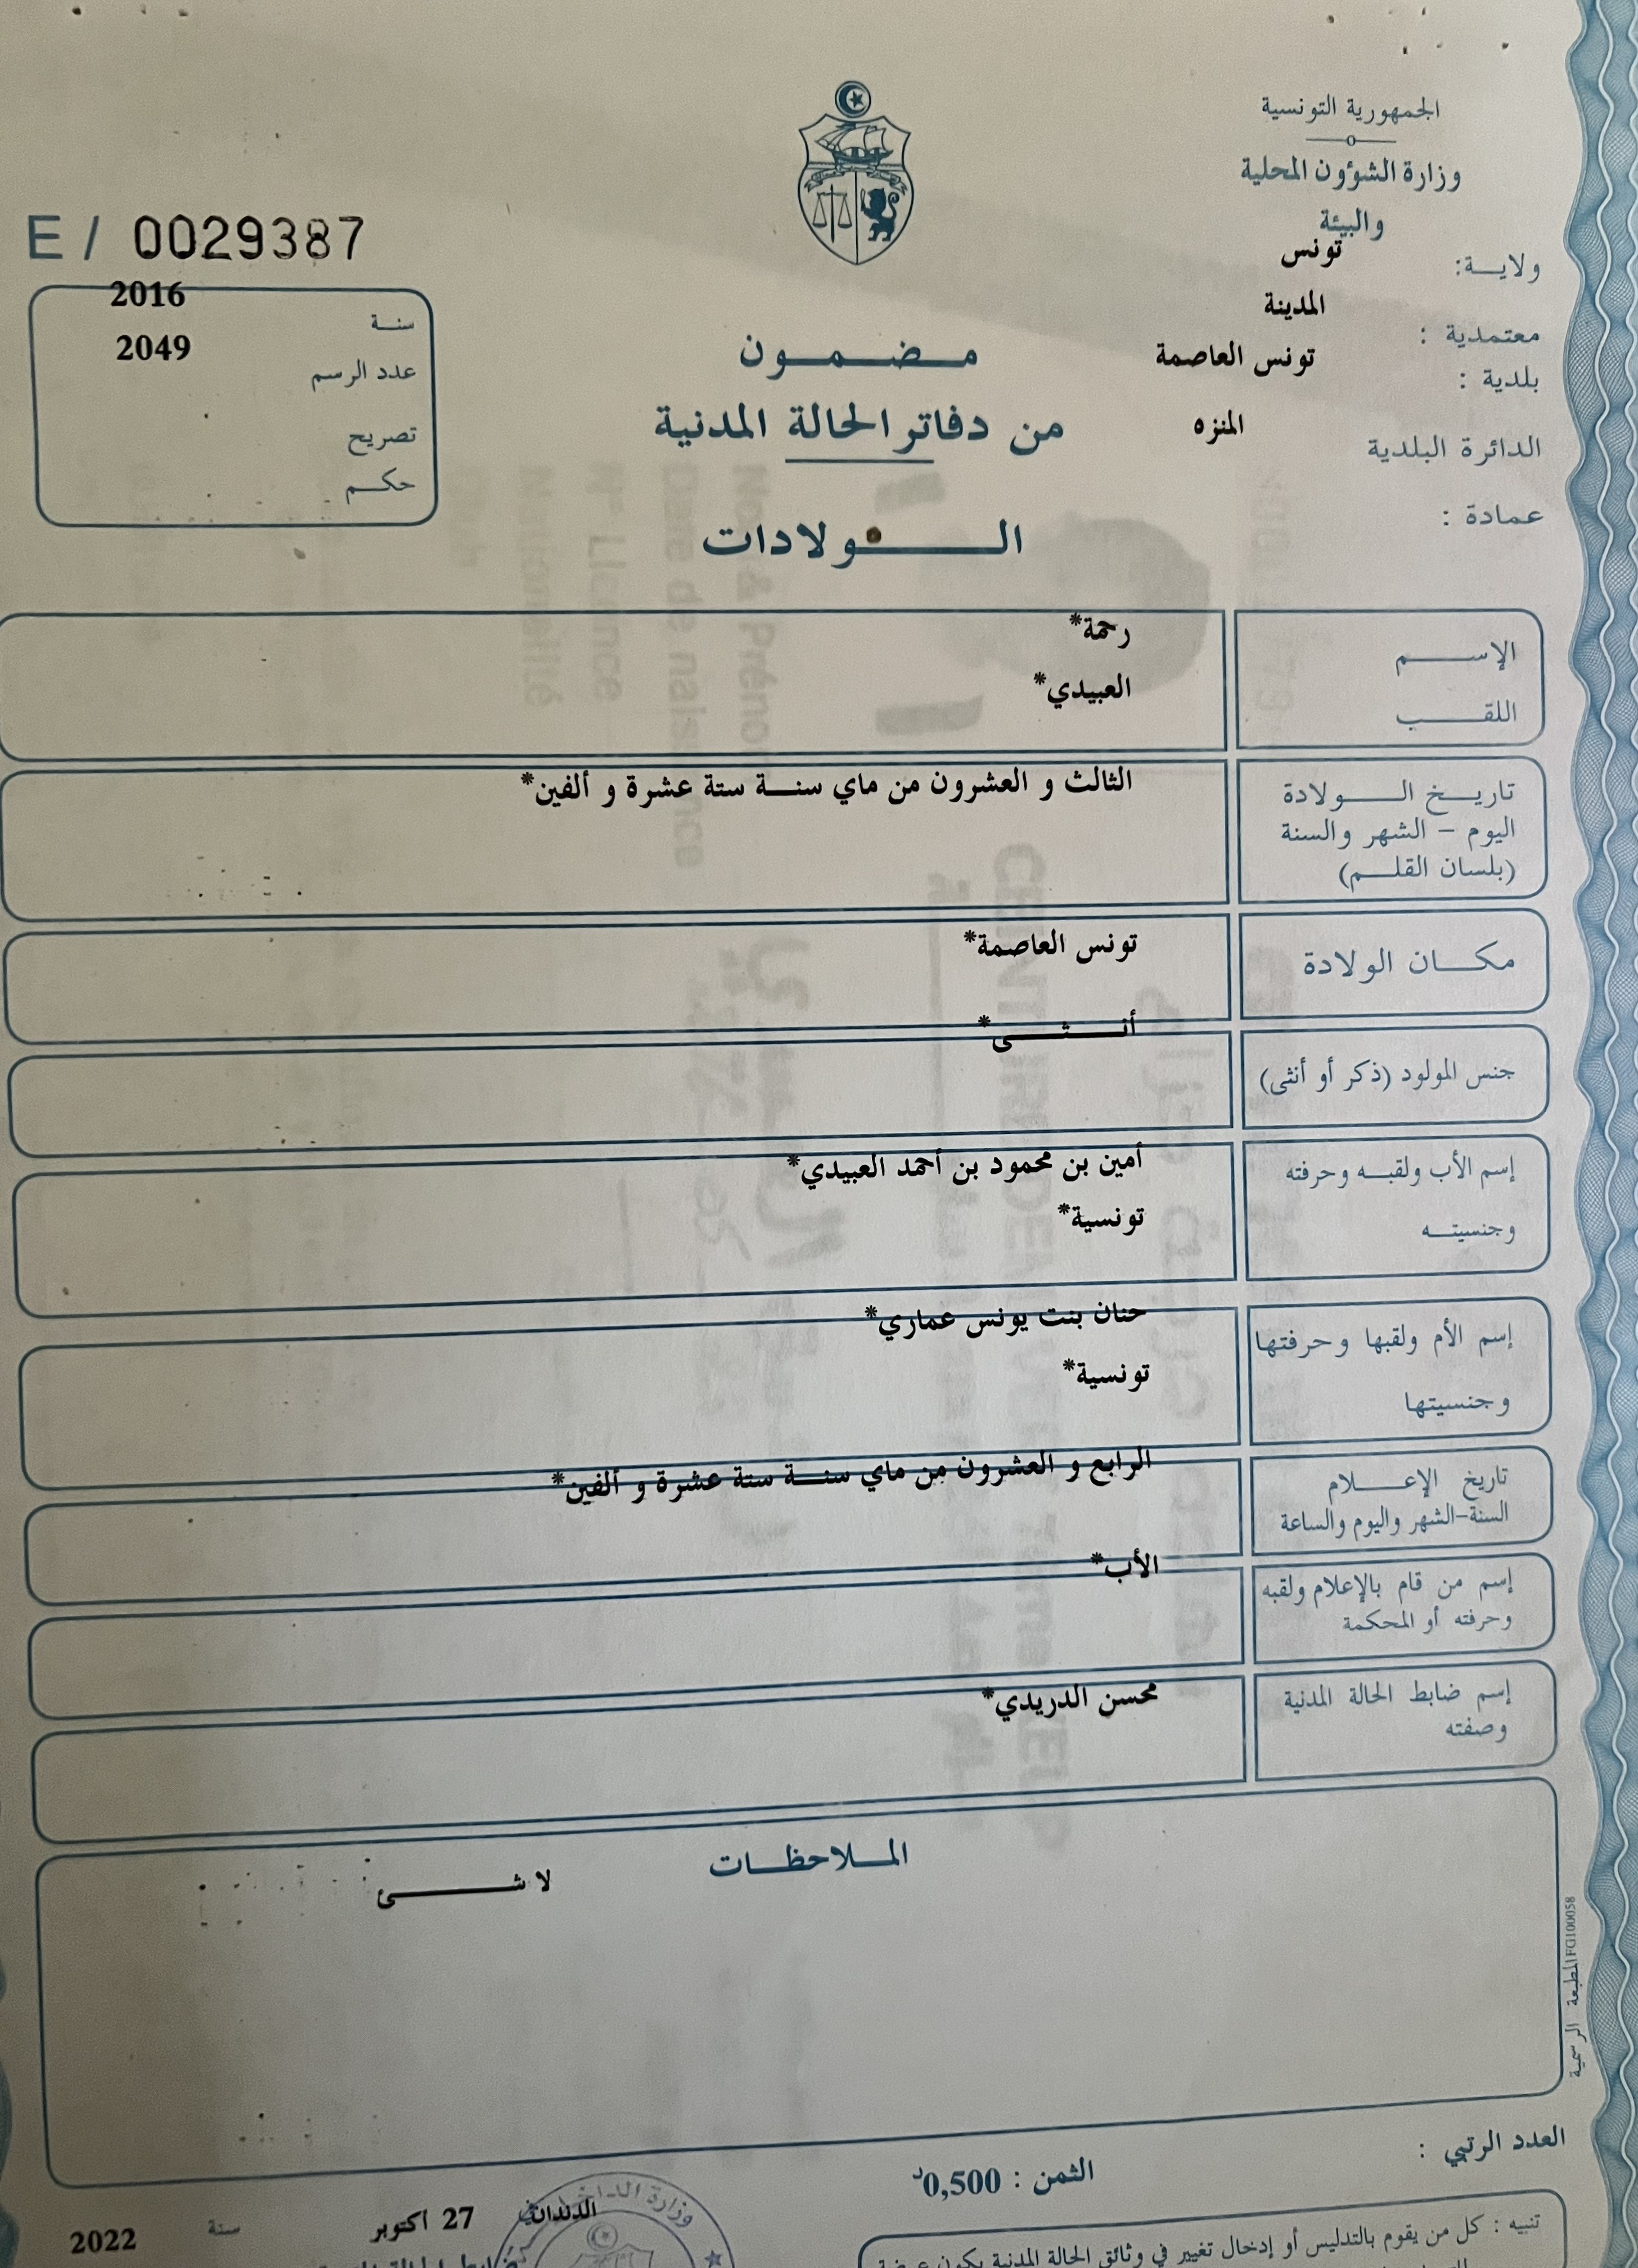 الجمهورية التونسية
وزارة الشؤون المحلية
والبيئة
ولاية: تونس
معتمدية : المدينة
بلدية : تونس العاصمة
الدائرة البلدية المنزه
عمادة :
E / 0029387
سنة 2016
عدد الرسم 2049
تصريح
حكم
مضمون
من دفاتر الحالة المدنية
الولادات
الإسم رحمة*
اللقب العبيدي*
تاريخ الولادة الثالث و العشرون من ماي سنة ستة عشرة و ألفين*
اليوم - الشهر والسنة
(بلسان القلم)
مكان الولادة تونس العاصمة*
جنس المولود (ذكر أو أنثى) أنثى*
إسم الأب ولقبه وحرفته أمين بن محمود بن أحمد العبيدي*
وجنسيته تونسية*
إسم الأم ولقبها وحرفتها حنان بنت يونس عماري*
وجنسيتها تونسية*
تاريخ الإعلام الرابع و العشرون من ماي سنة ستة عشرة و ألفين*
السنة-الشهر واليوم والساعة
إسم من قام بالإعلام ولقبه الأب*
وحرفته أو المحكمة
إسم ضابط الحالة المدنية محسن الدريدي*
وصفته
الملاحظات
لا شئ
المطبعة الرسمية FG100058
العدد الرتبي :
الثمن : 0,500د
الدندان 27 اكتوبر سنة 2022
وزارة الداخلية
تنبيه : كل من يقوم بالتدليس أو إدخال تغيير في وثائق الحالة المدنية يكون عرضة